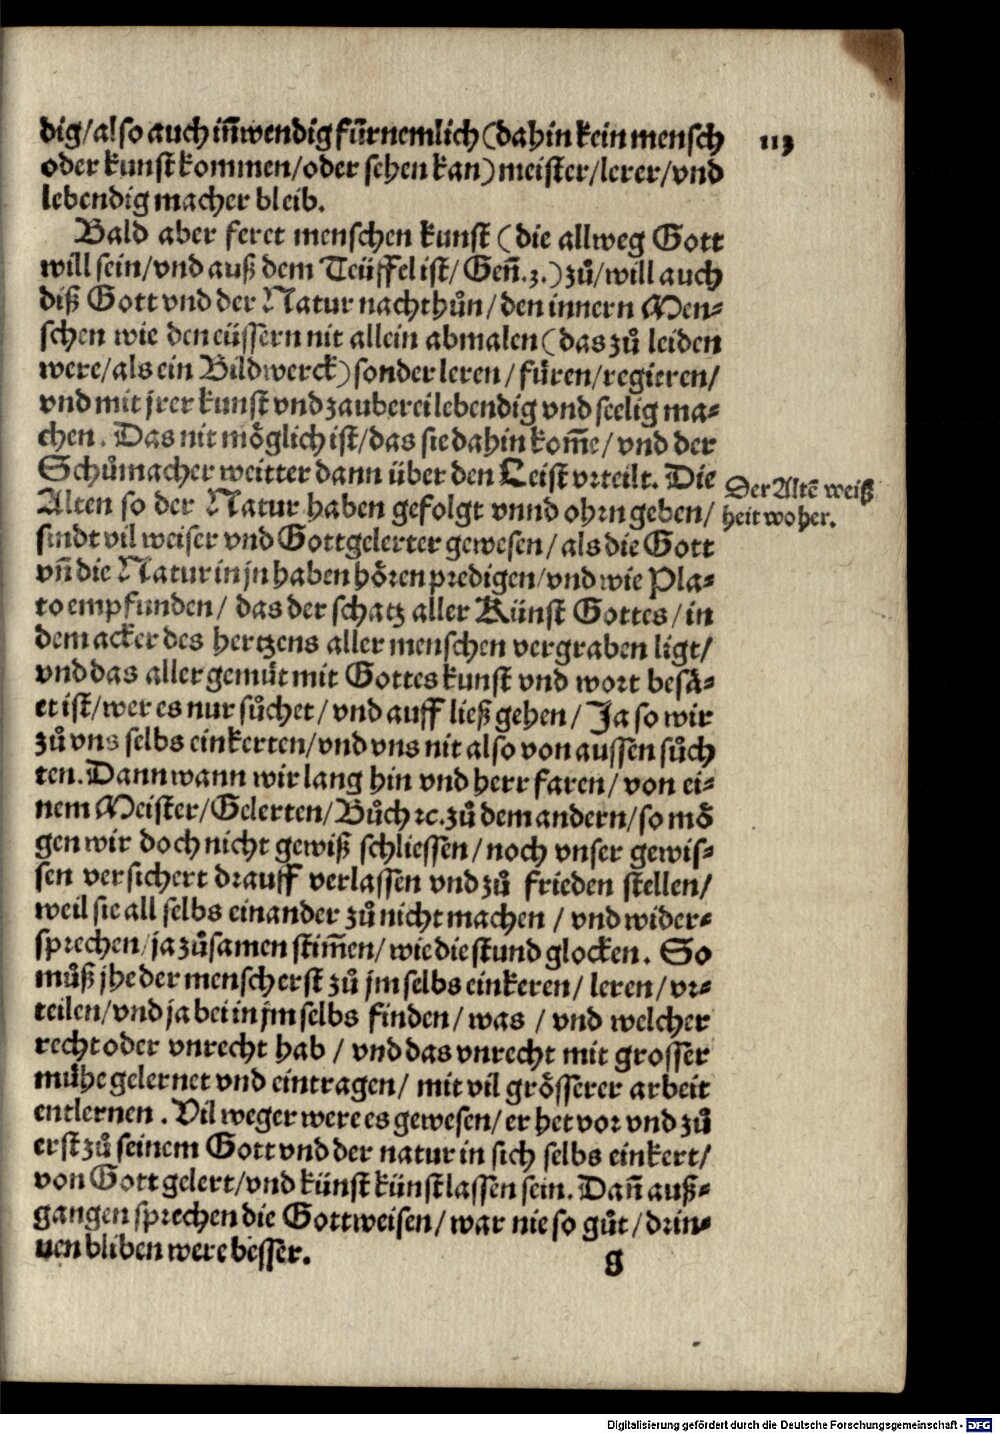 dig/also auch iñwendig fürnemlich (dahin kein mensch
113
oder kunst kommen/oder sehen kan) meister/lerer/vnd
lebendig macher bleib.
Bald aber feret menschen kunst (die allweg Gott
will sein/vnd auß dem Teüffel ist/Geñ.3.) zů/will auch
diß Gott vnd der Natur nachthůn/den innern Men⸗
schen wie den eüssern nit allein abmalen (das zů leiden
were/als ein Bildwerck) sonder leren/füren/regieren/
vnd mit jrer kunst vnd zauberei lebendig vnd seelig ma⸗
chen. Das nit möglich ist/das sie dahin kom̃e/vnd der
Schůmacher weitter dann über den Leist vrteilt. Die
Alten so der Natur haben gefolgt vnnd ohrn geben/
sindt vil weiser vnd Gottgelerter gewesen/als die Gott
vñ die Natur in jn haben hören predigen/vnd wie Pla⸗
to empfunden/ das der schatz aller Künst Gottes/in
dem acker des hertzens aller menschen vergraben ligt/
vnd das aller gemüt mit Gottes kunst vnd wort besä⸗
et ist/wer es nur sůchet/vnd auff ließ gehen/Ja so wir
zů vns selbs einkerten/vnd vns nit also von aussen sůch
ten. Dann wann wir lang hin vnd herr faren/von ei⸗
nem Meister/Gelerten/Bůch ꝛc. zů dem andern/so mö
gen wir doch nicht gewiß schliessen/noch vnser gewis⸗
sen versichert drauff verlassen vnd zů frieden stellen/
weil sie all selbs einander zů nicht machen/vnd wider⸗
sprechen/ja zůsamen stim̃en/wie die stund glocken. So
můß jheder mensch erst zů jm selbs einkeren/leren/vr⸗
teilen/vnd ja bei in jm selbs finden/was/vnd welcher
recht oder vnrecht hab/vnd das vnrecht mit grosser
mühe gelernet vnd eintragen/mit vil grösserer arbeit
entlernen. Vil weger were es gewesen/er het vor vnd zů
erst zů seinem Gott vnd der natur in sich selbs einkert/
von Gott gelert/vnd künst künst lassen sein. Dañ auß⸗
gangen sprechen die Gottweisen/war nie so gůt/drin⸗
nen bliben were besser.
g
Der Altẽ weiß
heit wo her.
Digitalisierung gefördert durch die Deutsche Forschungsgemeinschaft - DFG